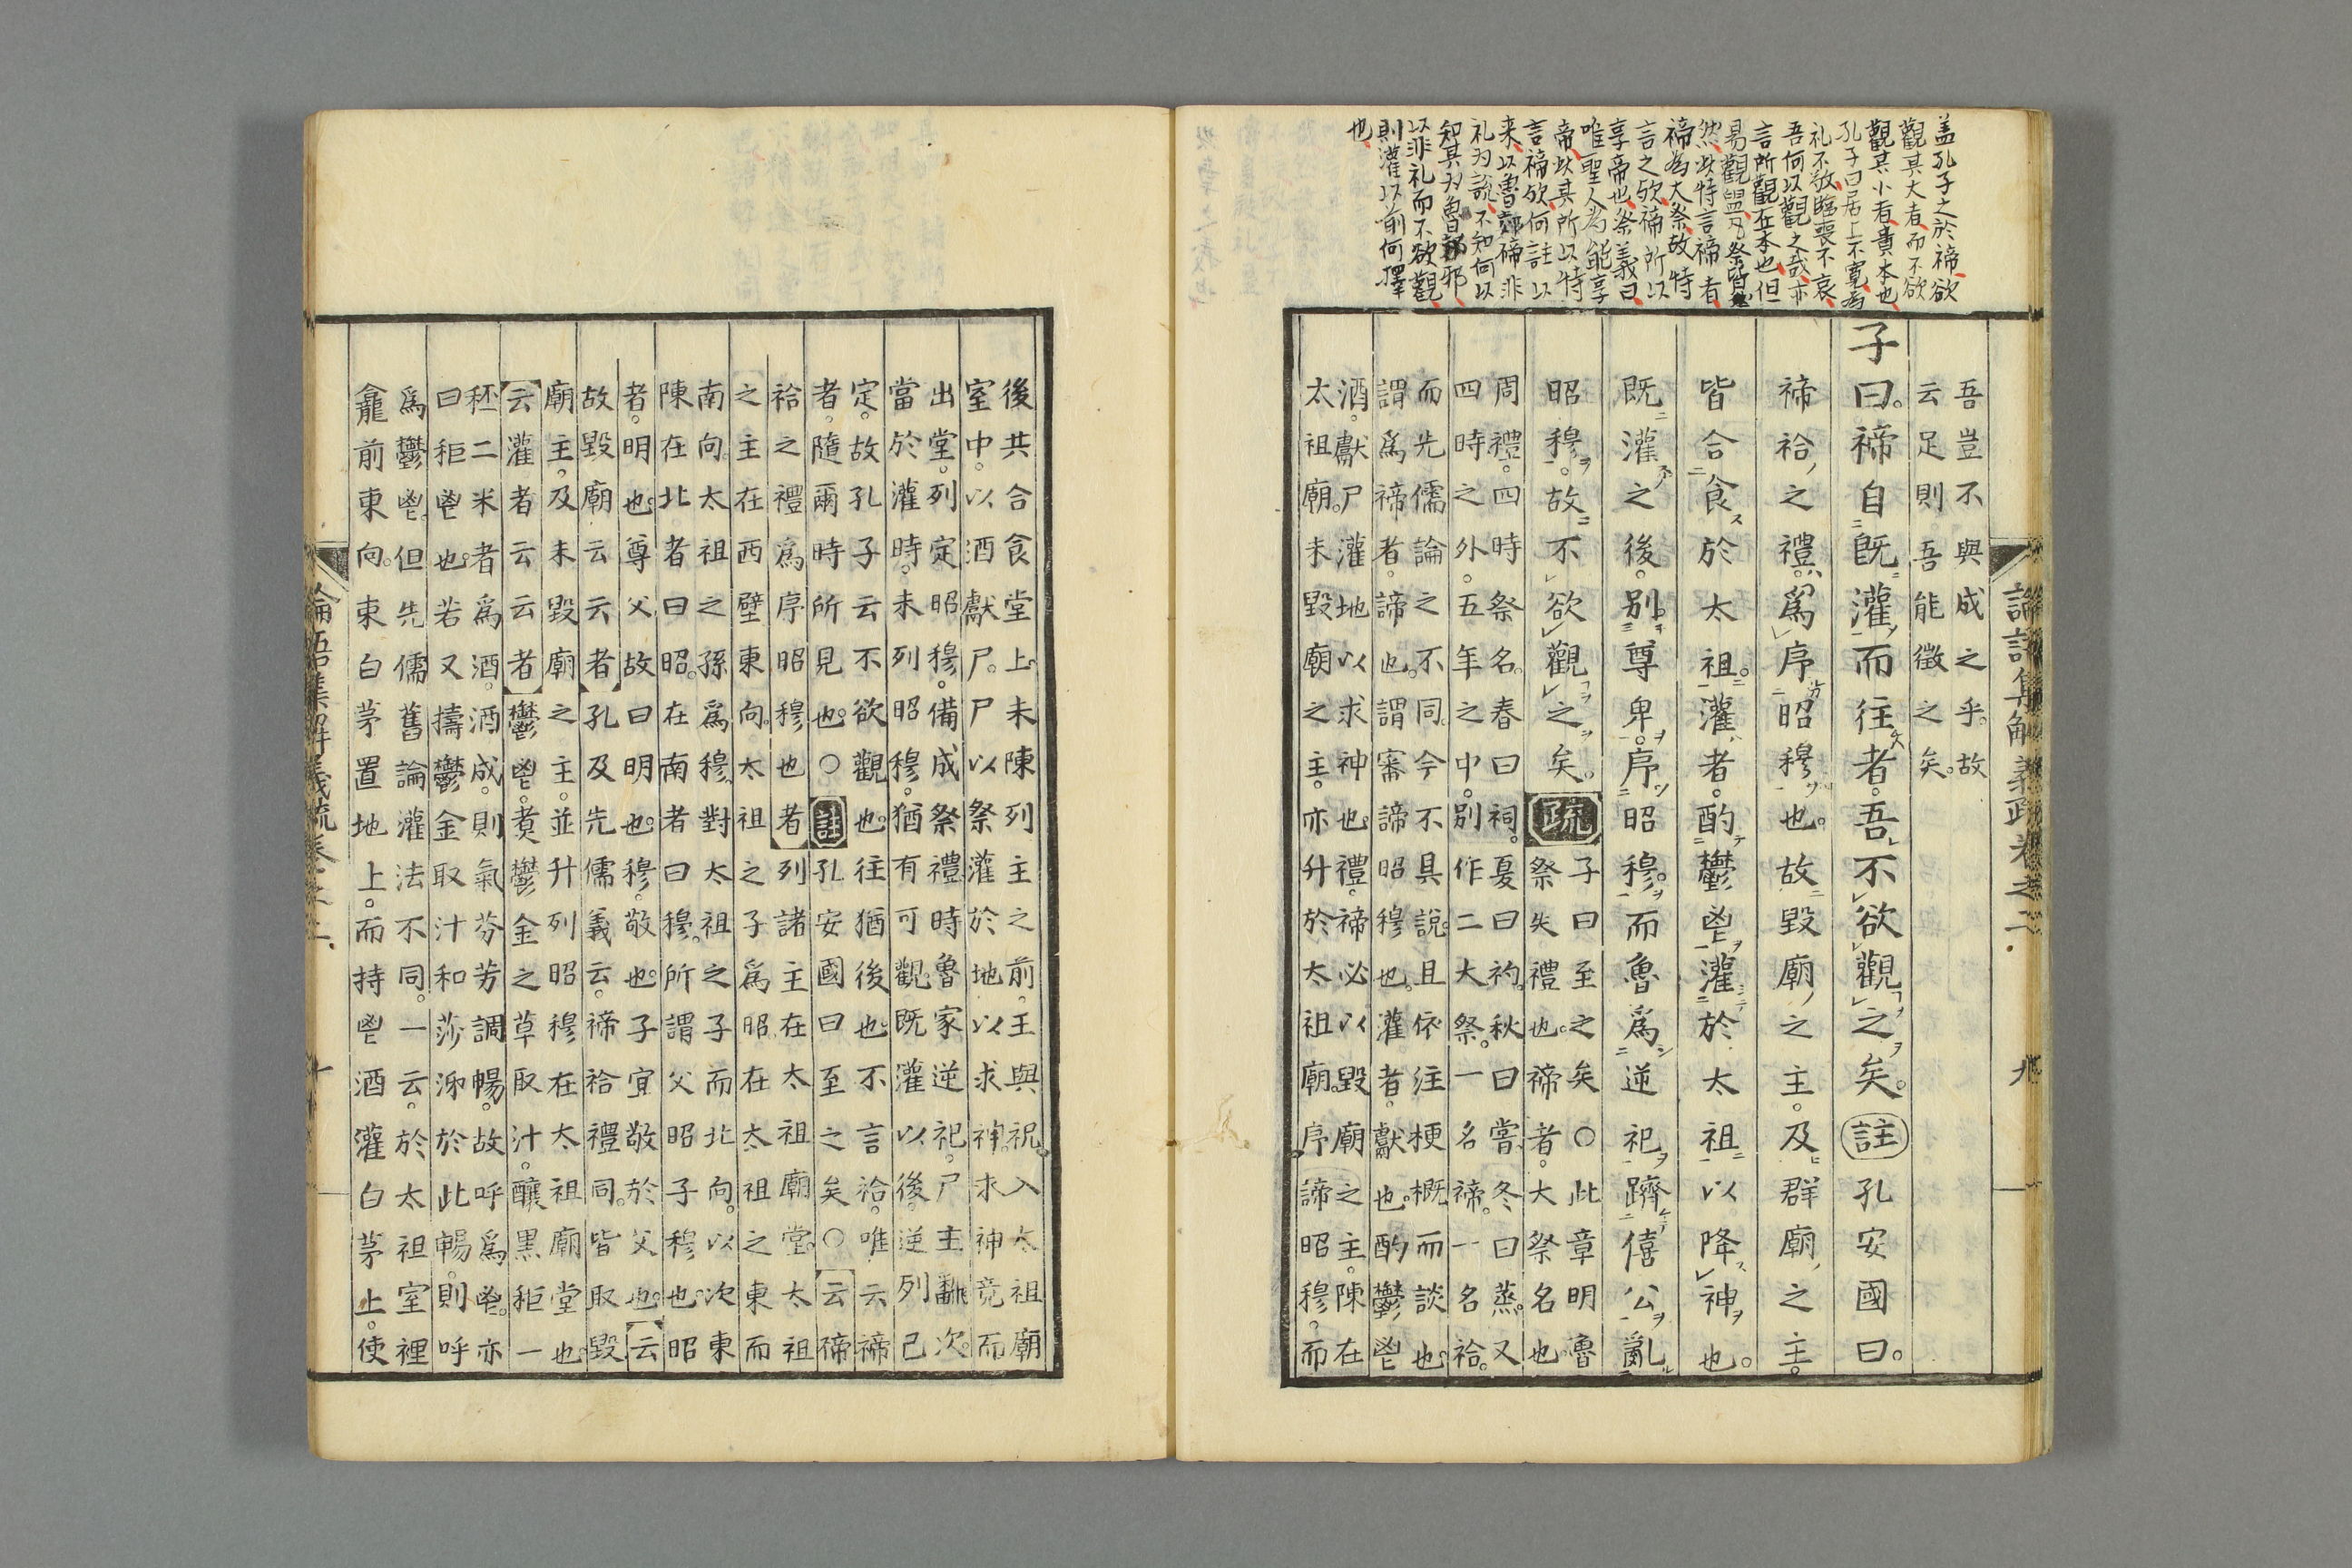 盖孔子之於禘欲
觀其大者而不欲
觀其小者貴本也
孔子曰居上不寬為
礼不敬臨喪不哀
吾何以觀之哉亦
言所觀在本也但
易觀盥凡祭皆
然此特言禘者
禘為大祭故特
言之歟禘所以
享帝也祭義曰
唯聖人為能享
帝以其所以特
言禘欤何註以
来以魯郊禘非
礼为說不知何以
知其为魯郊邪
以非礼而不欲觀
則灌以前何擇
也
吾豈不與成之乎。故
云足則。吾能徵之矣。
子曰。禘自既灌而往者。吾不欲觀之矣。註孔安國曰。
禘祫之禮。爲序昭穆也。故毀廟之主。及群廟之主。
皆合食於太祖。灌者。酌鬱鬯灌於太祖以降神也。
既灌之後。別尊卑。序昭穆。而魯爲逆祀躋僖公亂
昭穆。故不欲觀之矣。疏
子曰至之矣○此章明魯
祭失禮也。禘者。大祭名也。
周禮。四時祭名。春曰祠。夏曰礿。秋曰嘗。冬曰蒸。又
四時之外。五年之中。別作二大祭。一名禘。一名祫。
而先儒論之不同。今不具說。且依注梗概而談
謂爲禘者。諦也。謂審諦昭穆也。灌者。獻也。酌鬱鬯
酒。獻尸灌地以求神也。禮。禘必以毀廟之主。陳在
太祖廟。未毀廟之主。亦升於太祖廟。序諦昭穆。而
論語集解義疏卷之二 九
後共合食堂上。未陳列主之前。王與祝。入太祖廟
室中。以酒獻尸。尸以祭灌於地以求神。求神竟而
出堂。列定昭穆。備成祭禮。時魯家逆祀。尸主翻次。
當於灌時。未列昭穆。猶有可觀。既灌以後。逆列已
定。故孔子云不欲觀也。往猶後也。不言祫。唯云禘
者。隨爾時所見也。○註孔安國曰至之矣○云禘
祫之禮爲序昭穆也者列諸主在太祖廟堂。太祖
之主在西壁東向。太祖之子爲昭。在太祖之東而
南向。太祖之孫爲穆。對太祖之子而北向。以次東
陳在北者曰昭。在南者曰穆。所謂父昭子穆也。昭
者。明也。尊父故曰明也。穆。敬也。子宜敬於父也。云
故毀廟云云者孔及先儒義云。禘祫禮同。皆取毀
廟主。及未毀廟之主。並升列昭穆在太祖廟堂也。
云灌者云云者鬱鬯。煑鬱金之草取汁。釀黑秬一
秠二米者爲酒。酒成。則氣芬芳調暢。故呼爲鬯。亦
曰秬鬯也。若又擣鬱金取汁和莎泲於此暢。則呼
爲鬱鬯。但先儒舊論灌法不同。一云。於太祖室裡
龕前東向。束白茅置地上。而持鬯酒灌白茅上。使
論語集解義疏卷之二 十